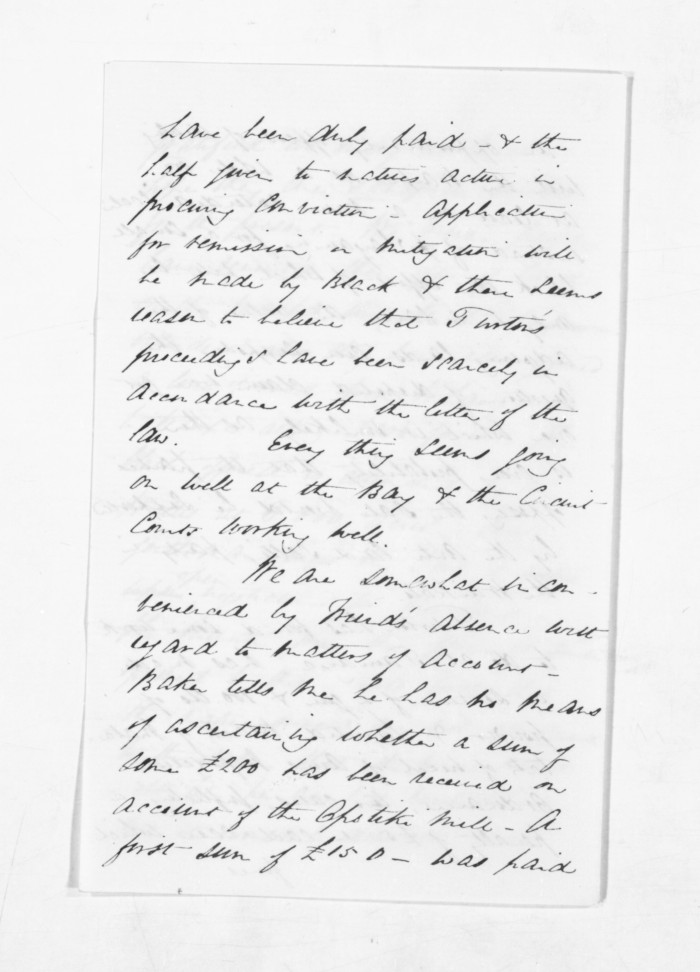 have been duly paid - & the
half given to natives active in
procuring Conviction - Application
for remission or mitigation will
be made by Black & there seems
reason to believe that Turton's
proceedings have been scarcely in
accordance with the letter of the
law. Every thing seems going
on well at the Bay & the Circuit
Courts working well.
We are somewhat incon-
venienced by Friend's absence with
regard to matters of account -
Baker tells me he has no means
of ascertaining whether a sum of
some £200 has been received on
account of the Opotiki Mill - A
first sum of £150 - was paid